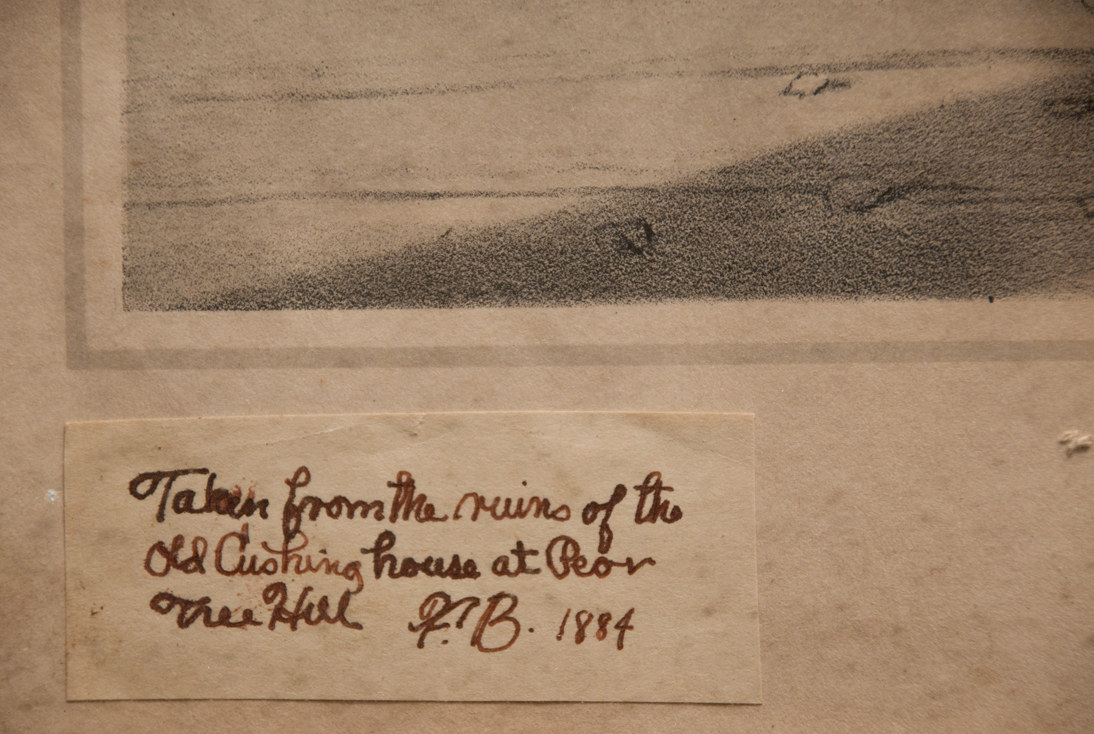 Taken from the ruins of the
Old Cushing house at Pear
Tree Hill F. B. 1884